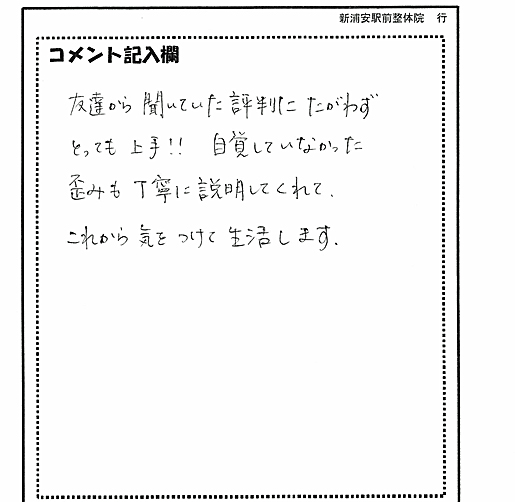 新浦安駅前整体院 行
コメント記入欄
友達から聞いていた評判にたがわず
とっても上手!! 自覚していなかった
歪みも丁寧に説明してくれて、
これから気をつけて生活します.